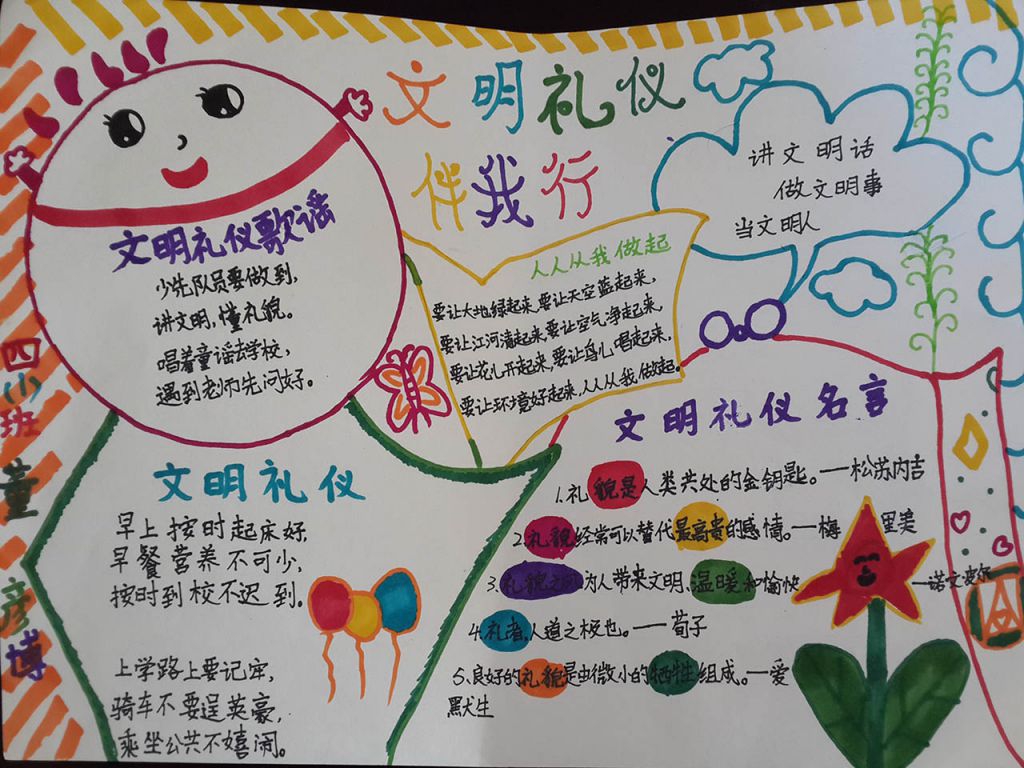 文明礼仪
伴我行
讲文明话
做文明事
当文明人
文明礼仪歌谣
少先队员要做到,
讲文明,懂礼貌。
唱着童谣去学校,
遇到老师先问好。
人人从我做起
要让大地绿起来,要让天空蓝起来,
要让江河清起来,要让空气净起来,
要让花儿开起来,要让鸟儿唱起来,
要让环境好起来,人人从我做起。
文明礼仪
早上按时起床好,
早餐营养不可少,
按时到校不迟到.
上学路上要记牢,
骑车不要逞英豪,
乘坐公共不嬉闹。
文明礼仪名言
1.礼貌是人类共处的金钥匙。——松苏内吉
2.礼貌经常可以替代最高贵的感情。——梅里美
3.礼貌之风为人带来文明、温暖和愉快——诺文奠尔
4.礼者,人道之极也。——荀子
5.良好的礼貌是由微小的牺牲组成。——爱
默犬生
四(小)班 董彦博